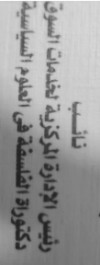 نائب
رئيس الإدارة المركزية لخدمات السوق
دكتوراة الفلسفة فى العلوم السياسية